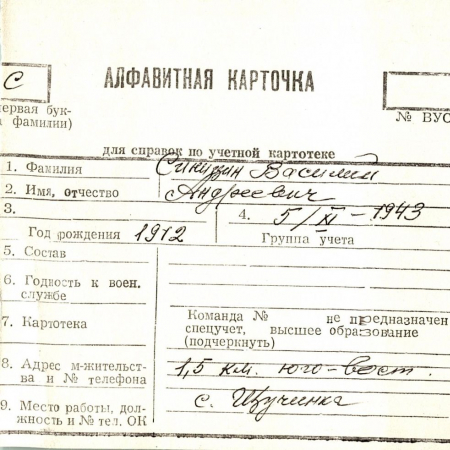 С
АЛФАВИТНАЯ КАРТОЧКА
первая бук-
фамилии)
№ ВУС
для справок по учетной картотеке
1. Фамилия Василий
2. Имя, отчество Андреевич
3. 4. 5/XI-1943
Год рождения 1912 Группа учета
5. Состав
6. Годность к воен.
службе
7. Картотека
Команда № не предназначен
спецучет, высшее образование
(подчеркнуть)
8. Адрес м-жительст-
ва и № телефона
1,5 км. юго-вост.
9. Место работы, дол-
жность и № тел. ОК
с. Щучинка